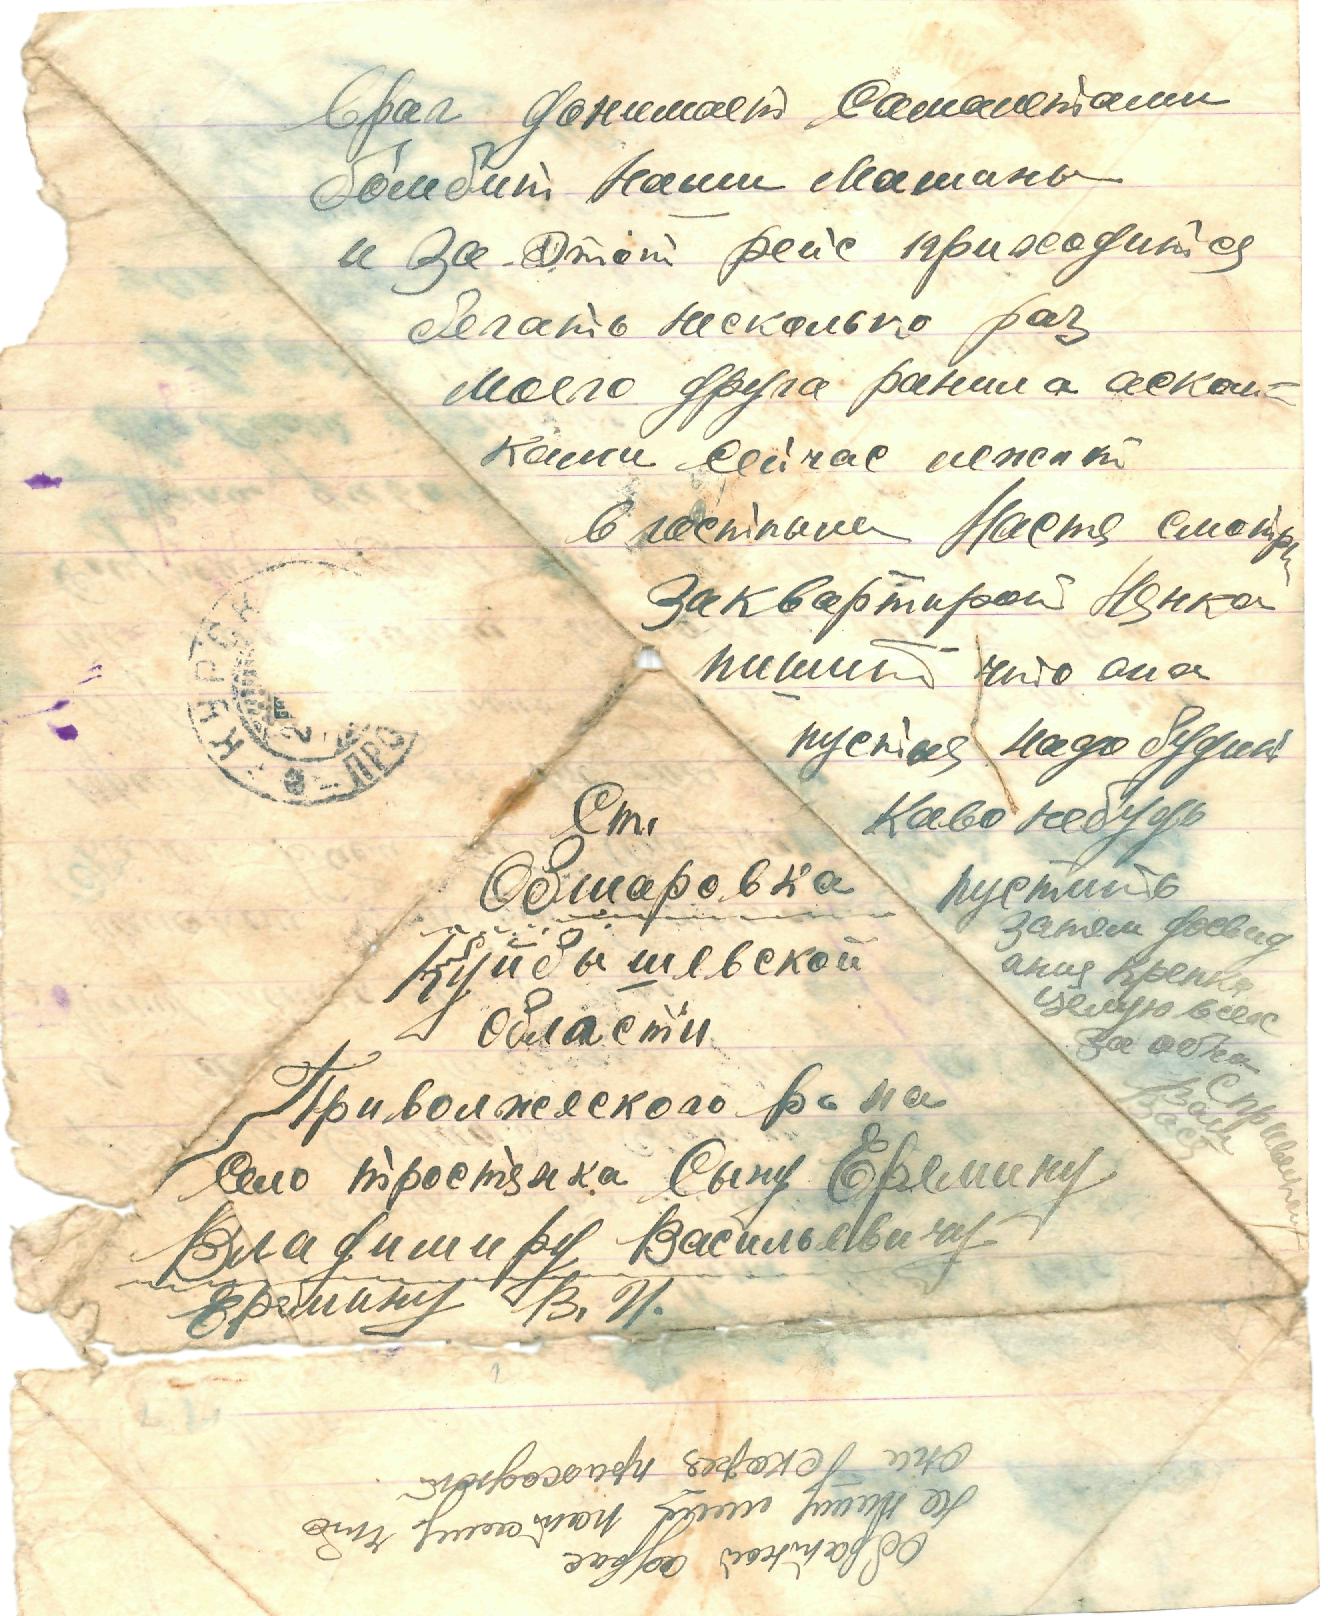 Враг донимает Самалетами
бомбит Наши Машины
и За Этот рейс приходится
бегать несколько раз
Моего друга ранила аскол-
ками Сейчас лежит
в госпитале Настя смотри
За квартирой Нянка
пишит что она
пустая надо будит
Каво небудь
пустить
Затем досвид
ания Крепко
Целую всех
За
Вам
Вася
КУРСК
ПРО
Ст.
Обшаровка
Куйбышевской
Области
Приволжского р на
Село тростянка Сыну Еремину
Владимиру Васильевичу
Еремину В. И.
Обратной адрес
не пишу патаму что
они скора